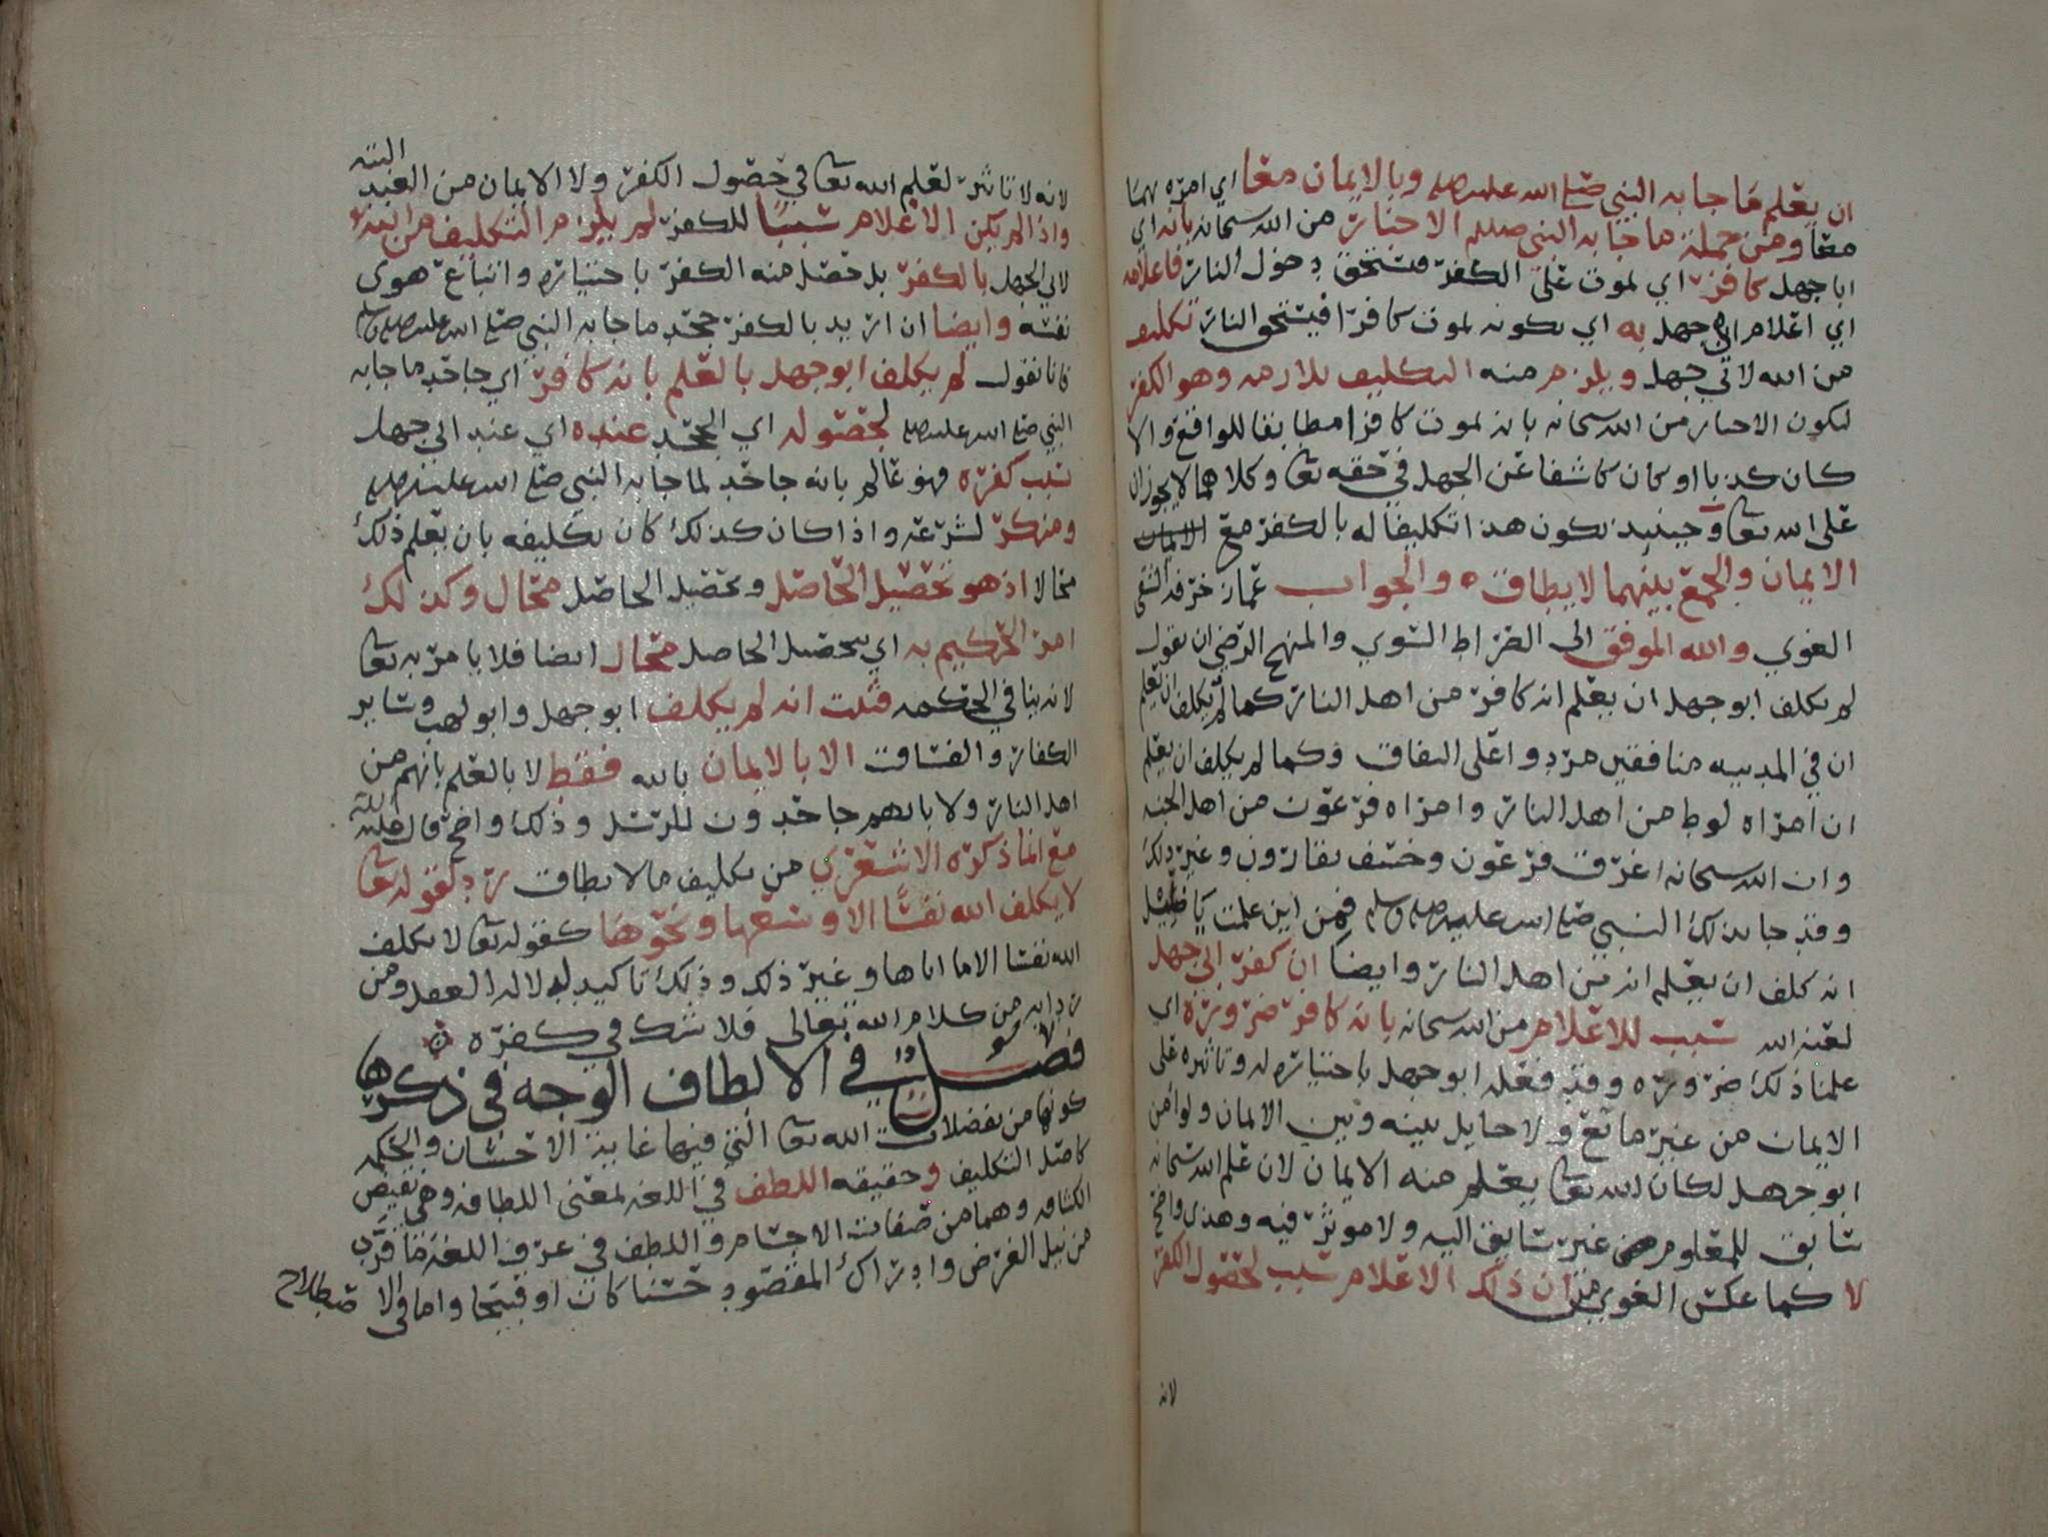 ان يعلم ما جا به النبي صلى الله عليه وسلم وبالايمان معا اي امره بهما
معا ومن جملة ما جا به النبي صللم الاخبار من الله سبحانه بانه اي
ابا جهل كافر اي يموت على الكفر مستحق دخول النار فاعلامه
اي اعلام ابي جهل به اي بكونه يموت كافرا فيستحق النار تكليف
من الله لابي جهل ويلزم منه التكليف بلازمه وهو الكفر
ليكون الاخبار من الله سبحانه بانه يموت كافرا مطابقا للواقع والا
كان كذبا او كان كاشفا عن الجهل في حقه تعا وكلاهما لا يجوزان
على الله تعا وحينيذ يكون هذا تكليفا له بالكفر مع
الايمان والجمع بينهما لا يطاق والجواب عما زخرفه الشقي
الغوي والله الموفق الى الصراط السوي والمنهج الرضي ان نقول
لم يكلف ابو جهل ان يعلم انه كافر من اهل النار كما لم يكلف ان يعلم
ان في المدينه منافقين مردوا على النفاق وكما لم يكلف ان يعلم
ان امراة لوط من اهل النار وامراه فرعون من اهل الجنه
وان الله سبحانه اغرق فرعون وخسف بقارون وغير ذلك
وقد جا بذلك النبي صلى الله عليه وسلم فمن اين علمت يا
انه كلف ان يعلم انه من اهل النار وايضا ان كفر ابي جهل
لعنه الله سبب للاعلام من الله سبحانه بانه كافر ضرورة اي
علمنا ذلك ضروره وقد فعله ابو جهل باختياره له وتاثيره على
الايمان من غير مانع ولا حايل بينه وبين الايمان ولو امن
ابو جهل لكان الله تعا يعلم منه الايمان لان علم الله سبحانه
سابق للمعلوم غير سايق اليه ولا موثر فيه وهذا واضح
لا كما عكس الغوي من ان ذلك الاعلام سبب لحصول الكفر
لانه
لانه لا تاثير لعلم الله تعا في حصول الكفر ولا الايمان من العبد البته
واذا لم يكن الاعلام سببا للكفر لم يلزم التكليف من الله
لابي الجهل بالكفر بل حصل منه الكفر باختياره واتباع هوى
نفسه وايضا ان اريد بالكفر جحد ما جا به النبي صلى الله عليه وسلم
فانا نقول لم يكلف ابو جهل بالعلم بانه كافر اي جاحد ما جا به
النبي صلى الله عليه وسلم لحصوله اي الجحد عنده اي عند ابي جهل
بسبب كفره فهو عالم بانه جاحد لما جا به النبي صلى الله عليه وسلم
ومنكر لشرعه واذا كان كذلك كان تكليفه بان يعلم ذلك
محالا اذ هو تحصيل الحاصل وتحصيل الحاصل محال وكذلك
امر الحكيم به اي بتحصيل الحاصل محال ايضا فلا يامر به تعا
لانه ينافي الحكمه فثبت انه لم يكلف ابو جهل وابو لهب وساير
الكفار والفساق الا بالايمان بالله فقط لا بالعلم بانهم من
اهل النار ولا بانهم جاحدون للرسل وذلك واضح
مع ان ما ذكره الاشعري من تكليف ما لا يطاق رد لقوله تعا
لا يكلف الله نفسا الا وسعها ونحوها كقوله تعا لا يكلف
الله نفسا الا ما اتاها وغير ذلك وذلك تاكيد لدلالة العقل ومن
رد ايه من كلام الله تعالى فلا شك في كفره
فصل في الالطاف الوجه في ذكرها
كونها من تفضلات الله تعا التي فيها غاية الاحسان والحكمه
كاصل التكليف وحقيقه اللطف في اللغه لمعنى اللطافه وهي نقيض
الكثافه وهما من صفات الاجسام واللطف في عرف اللغة ما قرب
من نيل الغرض وادراك المقصود حسنا كان او قبيحا واما في الاصطلاح